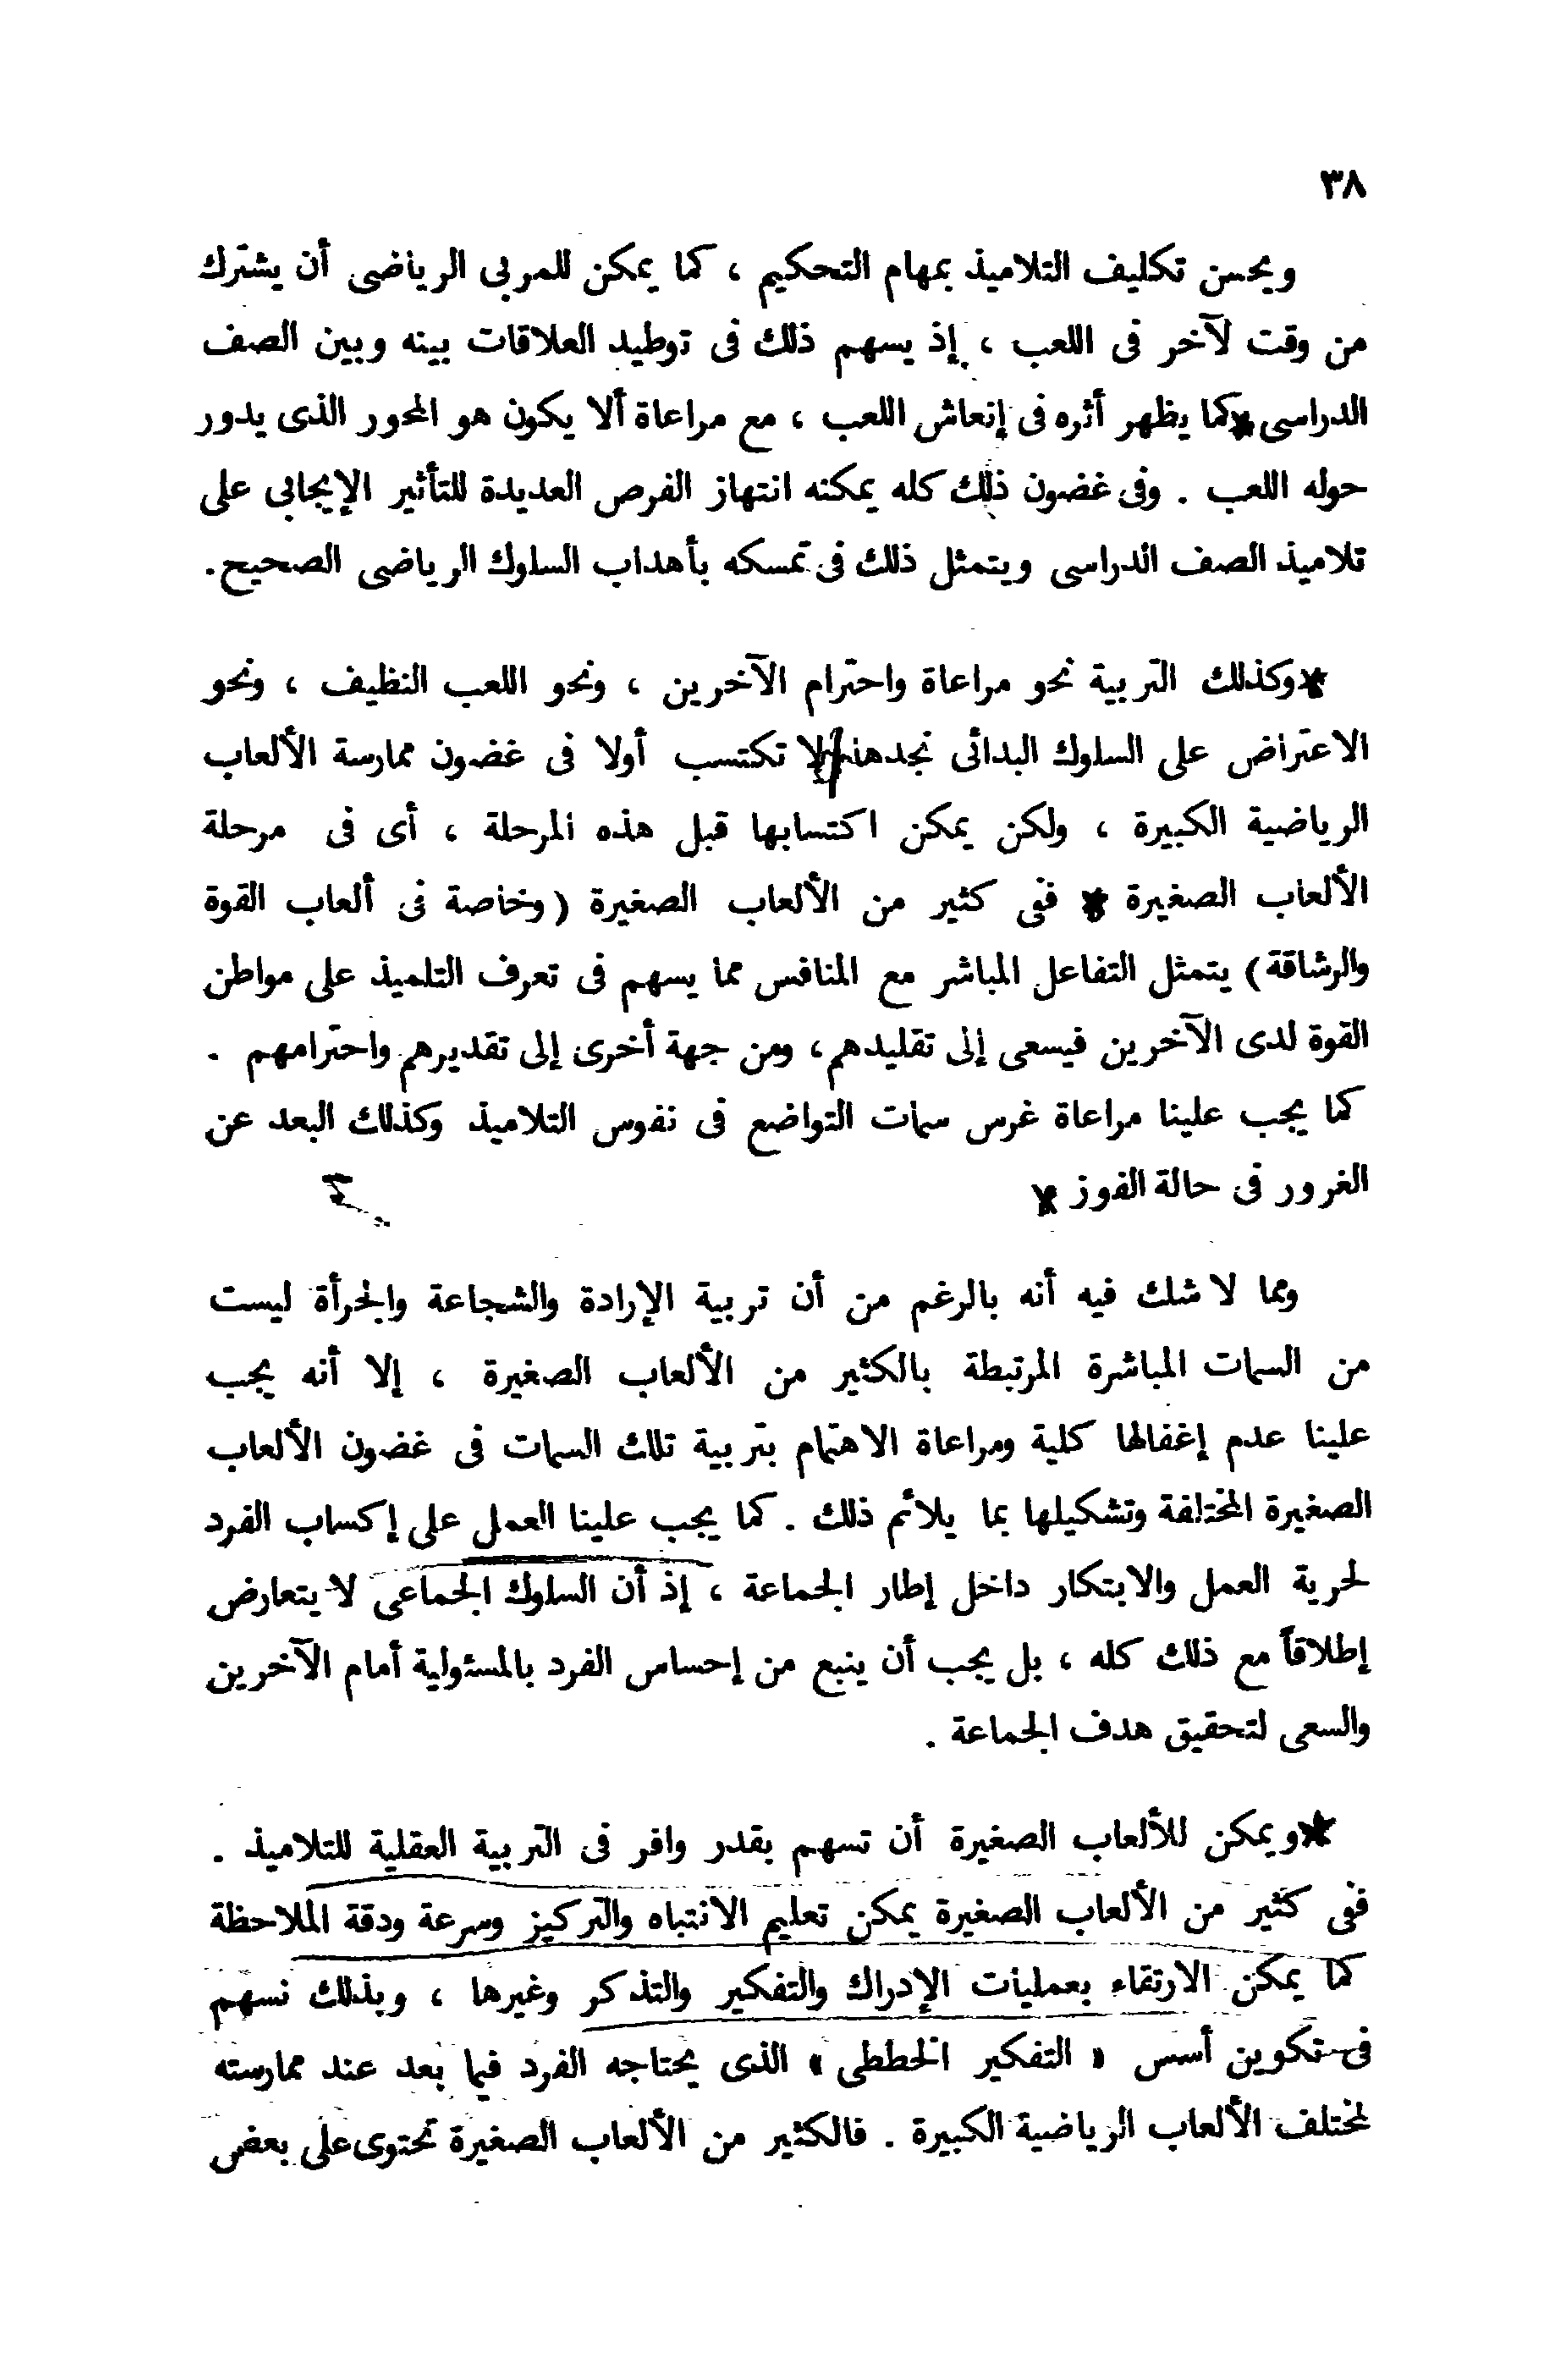 ٣٨
ويحسن تكليف التلاميذ بمهام التحكيم ، كما يمكن للمربى الرياضى أن يشترك
من وقت لآخر فى اللعب ، إذ يسهم ذلك فى توطيد العلاقات بينه وبين الصف
الدراسى كما يظهر أثره فى إنعاش اللعب ، مع مراعاة ألا يكون هو المحور الذى يدور
حوله اللعب . وفى غضون ذلك كله يمكنه انتهاز الفرص العديدة للتأثير الإيجابى على
تلاميذ الصف الدراسى ويتمثل ذلك فى تمسكه بأهداب السلوك الرياضى الصحيح.
وكذلك التربية نحو مراعاة واحترام الآخرين ، ونحو اللعب النظيف ، ونحو
الاعتراض على السلوك البدائى نجدها لا تكتسب أولا فى غضون ممارسة الألعاب
الرياضية الكبيرة ، ولكن يمكن اكتسابها قبل هذه المرحلة ، أى فى مرحلة
الألعاب الصغيرة ففى كثير من الألعاب الصغيرة (وخاصة فى ألعاب القوة
والرشاقة) يتمثل التفاعل المباشر مع المنافس مما يسهم فى تعرف التلميذ على مواطن
القوة لدى الآخرين فيسعى إلى تقليدهم، ومن جهة أخرى إلى تقديرهم واحترامهم .
كما يجب علينا مراعاة غرس سمات التواضع فى نفوس التلاميذ وكذلك البعد عن
الغرور فى حالة الفوز
ومما لا شك فيه أنه بالرغم من أن تربية الإرادة والشجاعة والجرأة ليست
من السمات المباشرة المرتبطة بالكثير من الألعاب الصغيرة ، إلا أنه يجب
علينا عدم إغفالها كلية ومراعاة الاهتمام بتربية تلك السمات فى غضون الألعاب
الصغيرة المختلفة وتشكيلها بما يلائم ذلك . كما يجب علينا العمل على إكساب الفرد
لحرية العمل والابتكار داخل إطار الجماعة ، إذ أن السلوك الجماعى لا يتعارض
إطلاقاً مع ذلك كله ، بل يجب أن ينبع من إحساس الفرد بالمسئولية أمام الآخرين
والسعى لتحقيق هدف الجماعة .
ويمكن للألعاب الصغيرة أن تسهم بقدر وافر فى التربية العقلية للتلاميذ .
ففى كثير من الألعاب الصغيرة يمكن تعليم الانتباه والتركيز وسرعة ودقة الملاحظة
كما يمكن الارتقاء بعمليات الإدراك والتفكير والتذكر وغيرها ، وبذلك نسهم
فى تكوين أسس « التفكير الخططى » الذى يحتاجه الفرد فيما بعد عند ممارسته
لمختلف الألعاب الرياضية الكبيرة . فالكثير من الألعاب الصغيرة تحتوى على بعض